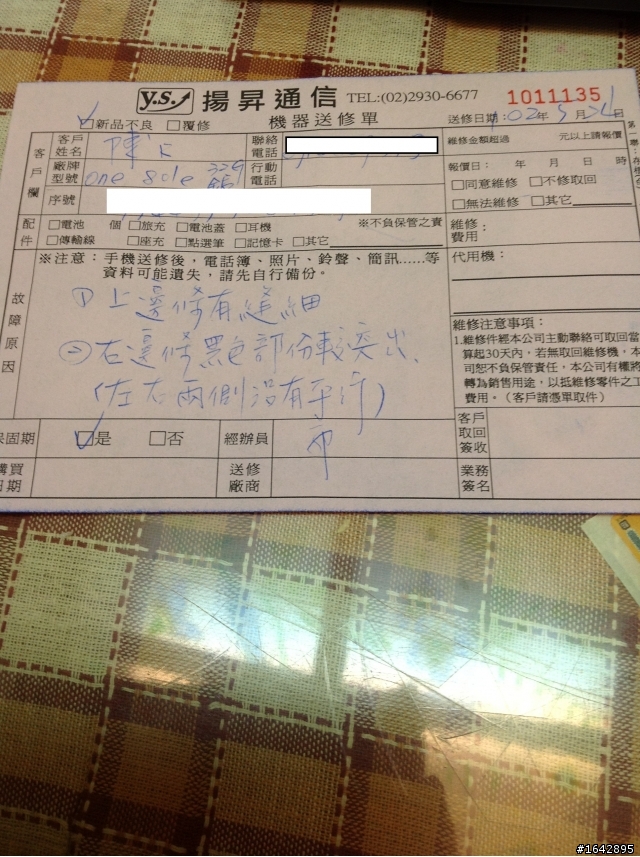 y.s. 揚昇通信 TEL:(02)2930-6677 1011135
☑新品不良 □覆修 機器送修單 送修日期:102年5月24
客戶欄
客戶姓名 陳 聯絡電話 維修金額超過 元以上請報價
廠牌型號 one 32G 行動電話 報價日: 年 月 日
序號 □同意維修 □不修取回
□無法維修 □其它
配件 □電池 個 □旅充 □電池蓋 □耳機 ※不負保管之責 維修費用:
□傳輸線 □座充 □點選筆 □記憶卡 □其它
故障原因
※注意:手機送修後,電話簿、照片、鈴聲、簡訊……等
資料可能遺失,請先自行備份。
代用機:
① 上邊條有縫細
② 右邊條黑色部份較突出
(左右兩側沒有平行)
維修注意事項:
1.維修件經本公司主動聯絡可取回當
算起30天內,若無取回維修機,本
司恕不負保管責任,本公司有權將
轉為銷售用途,以抵維修零件之工
費用。(客戶請憑單取件)
保固期 ☑是 □否 經辦員 客戶取回簽收
購買日期 送修廠商 業務簽名
#1642895